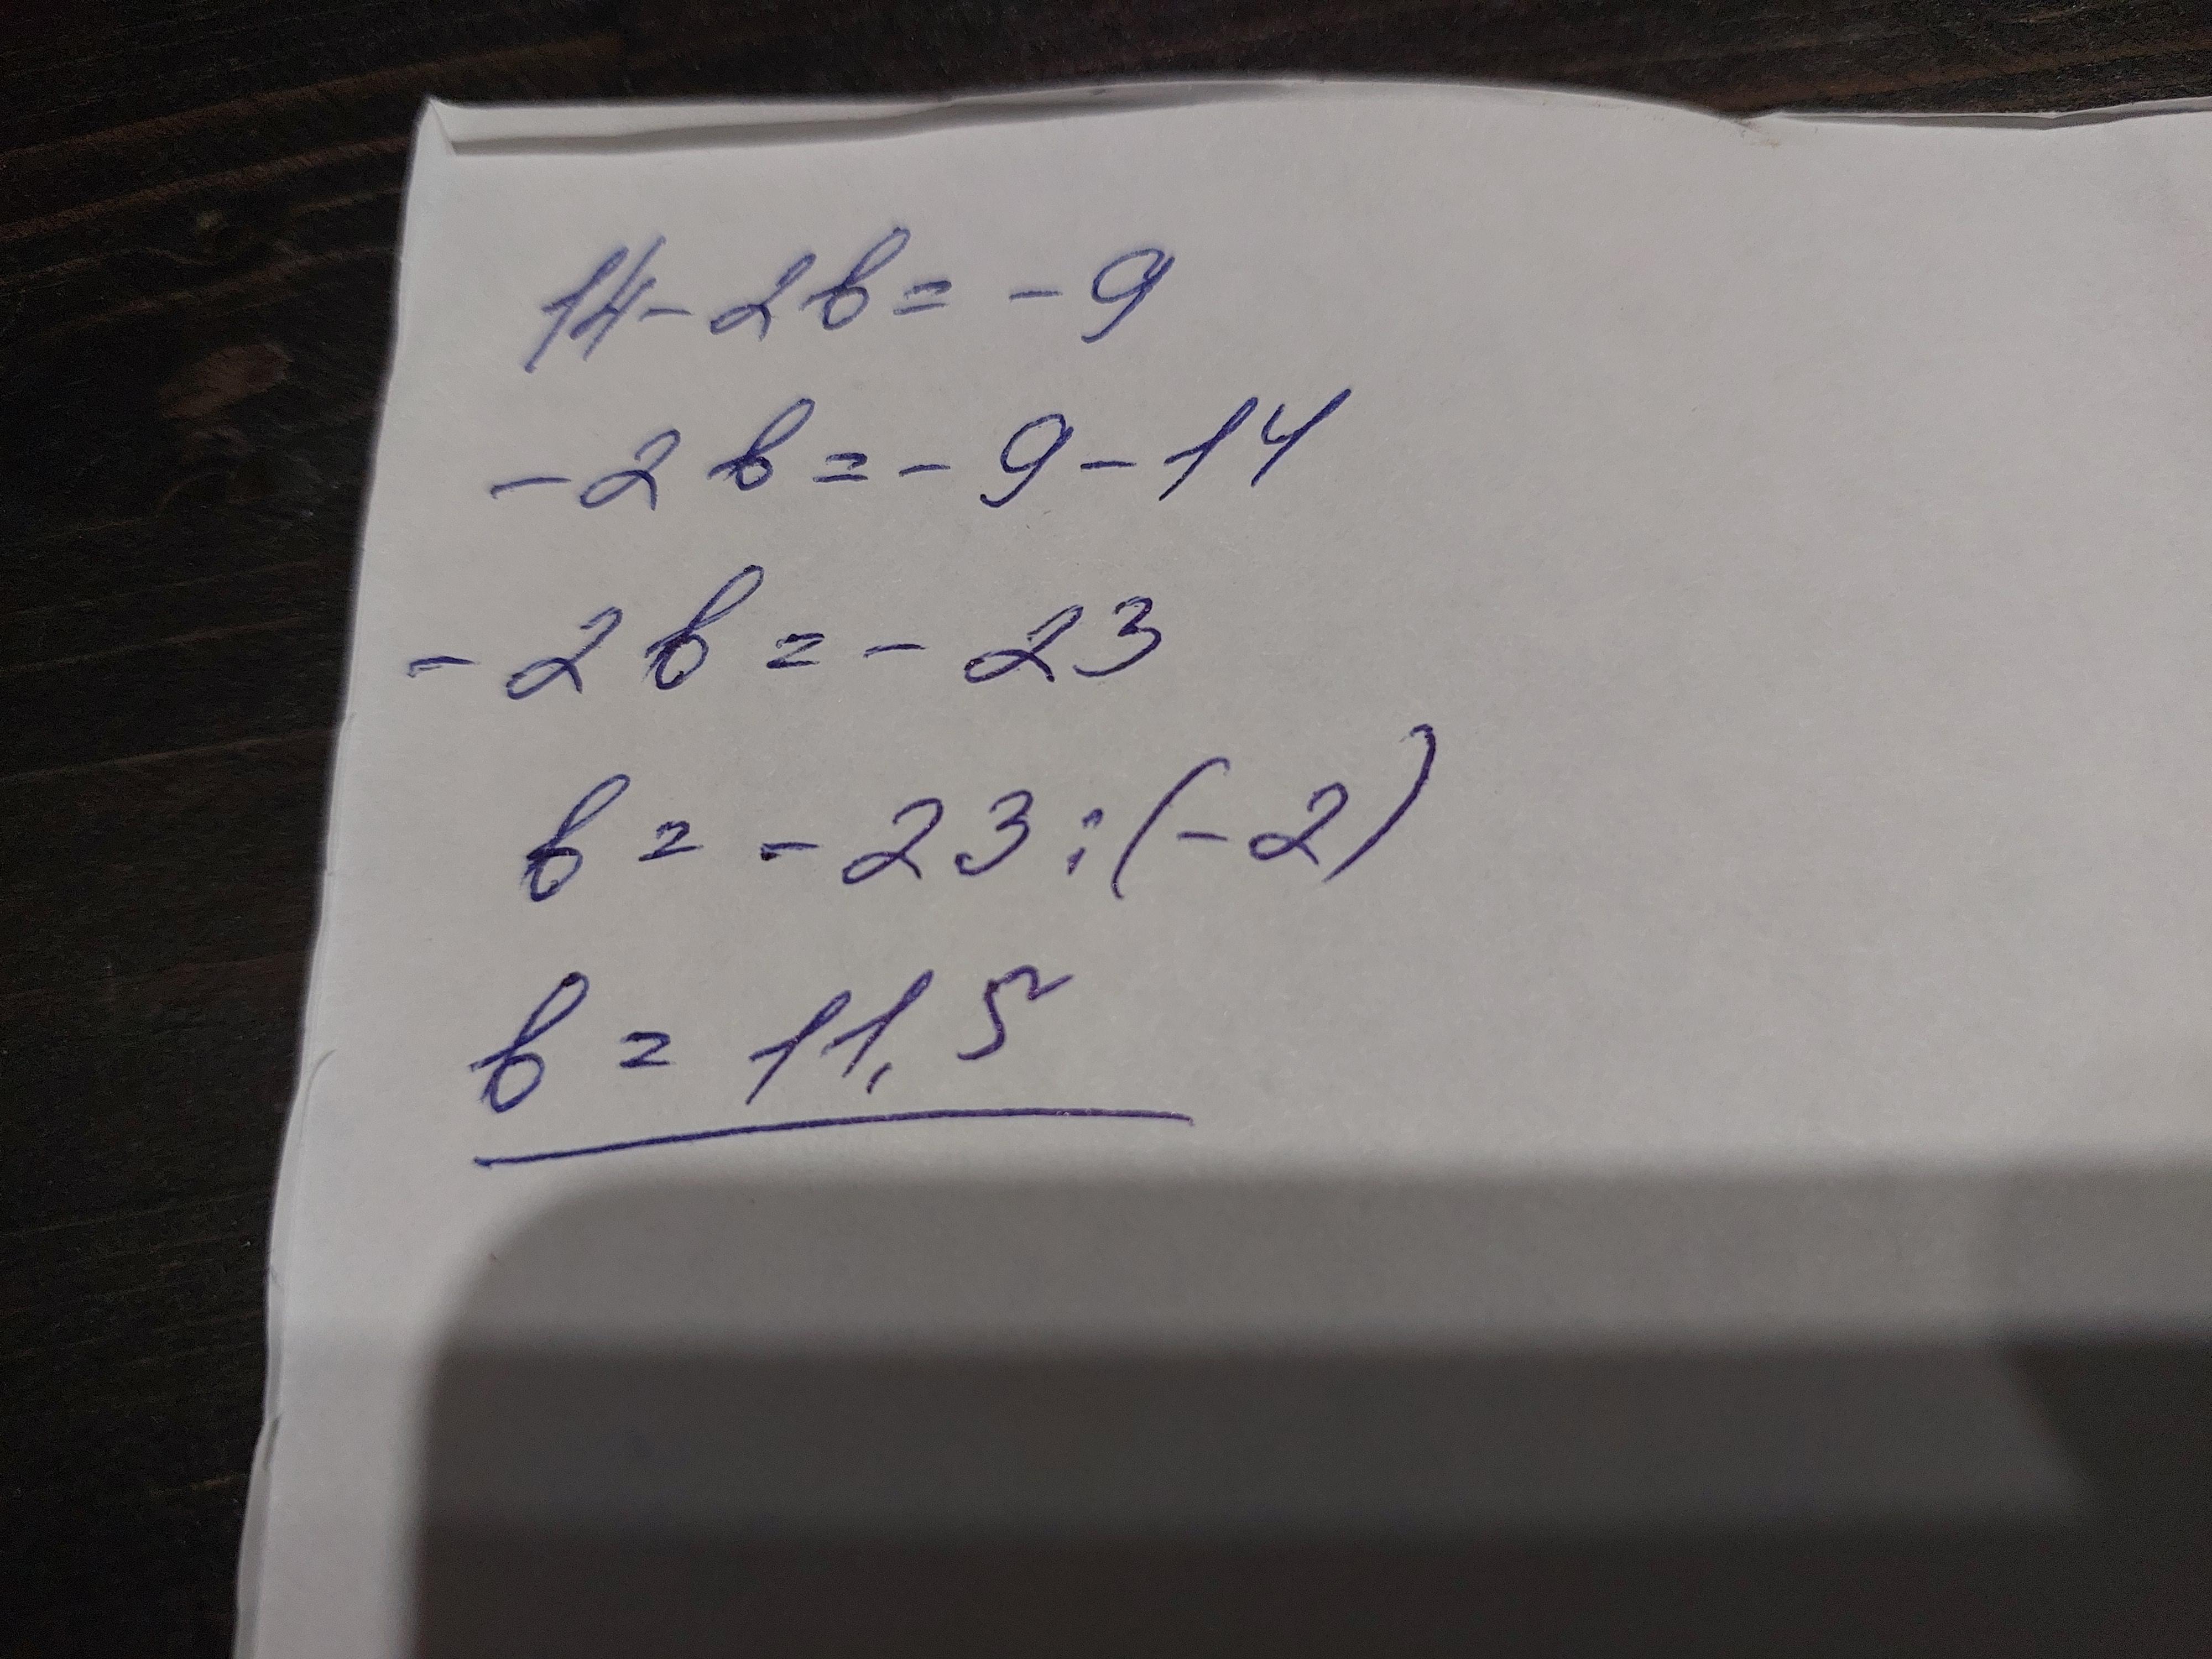 14-2b=-9
-2b=-9-14
-2b=-23
b=-23:(-2)
b=11,5